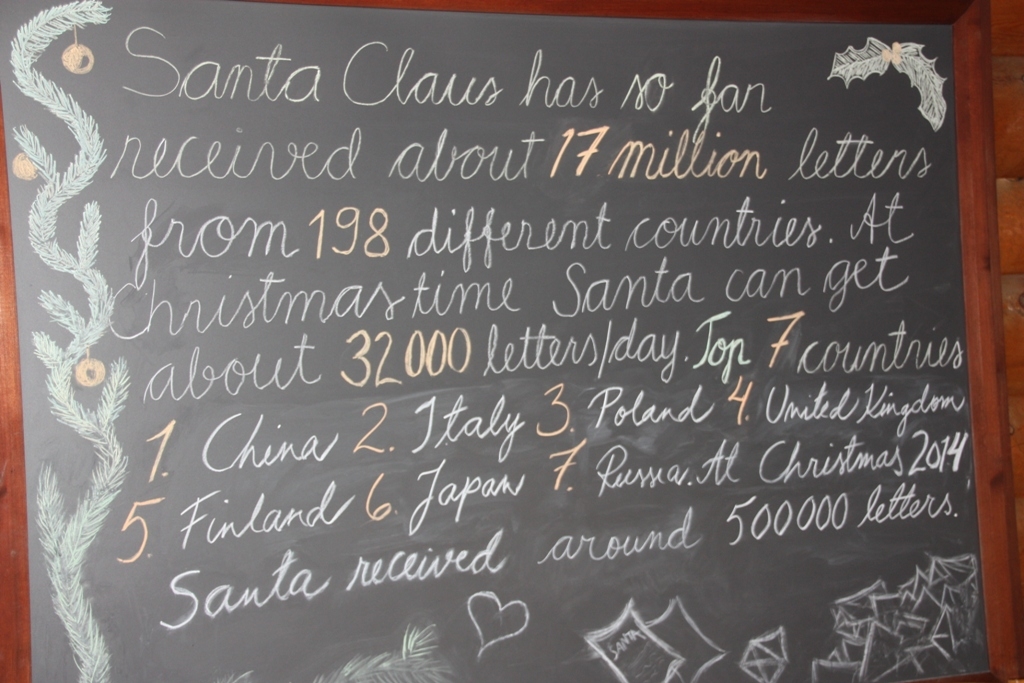 Santa Claus has so far
received about 17 million letters
from 198 different countries. At
Christmas time Santa can get
about 32 000 letters/day. Top 7 countries
1. China 2. Italy 3. Poland 4. United Kingdom
5. Finland 6. Japan 7. Russia. At Christmas 2014
Santa received around 500 000 letters.
SANTA